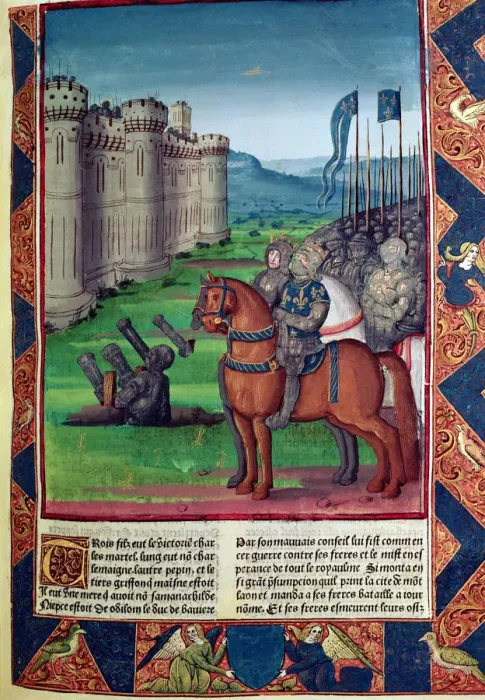 TRois filz eut le victorié char
les martel. lung eut nõ char
lemaigne. lautre pepin. et le
tiers griffon q maisne estoit
Il eut vne mere q auoit nõ samanachilde
Niepce estoit de obilom le duc de bauiere
Par son mauuais conseil lui fist commen
cer guerre contre ses freres et le mist en es
perance de tout le royaulme Si monta en
si grãt psumpcion quil print la cite de mõt
laon et manda a ses freres bataille a iour
nõme. Et ses freres esmeurent leurs ostz